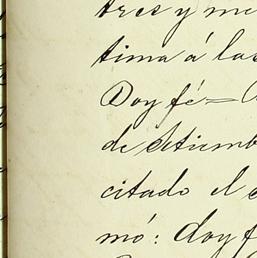 tres y me
tima á las
Doy fé=
de Setiemb
citado el
mó: doy f